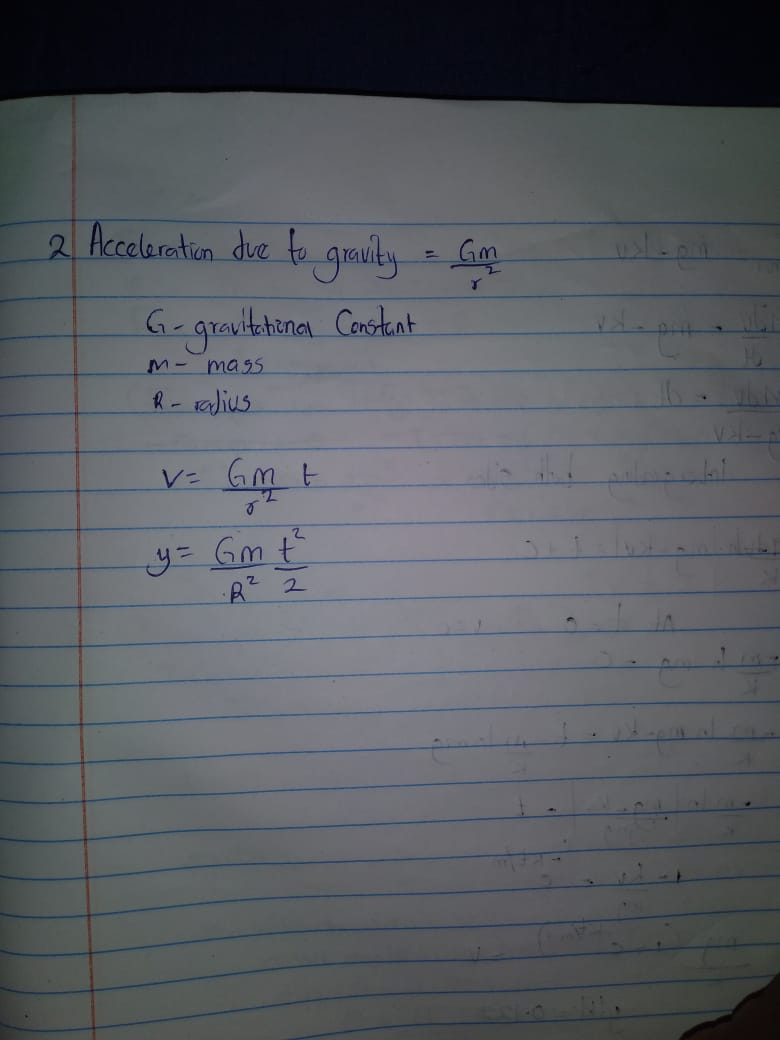 2 Acceleration due to gravity = Gm/r²
G - gravitational Constant
M - mass
R - radius
V = Gm/r² t
y = Gm/R² t²/2